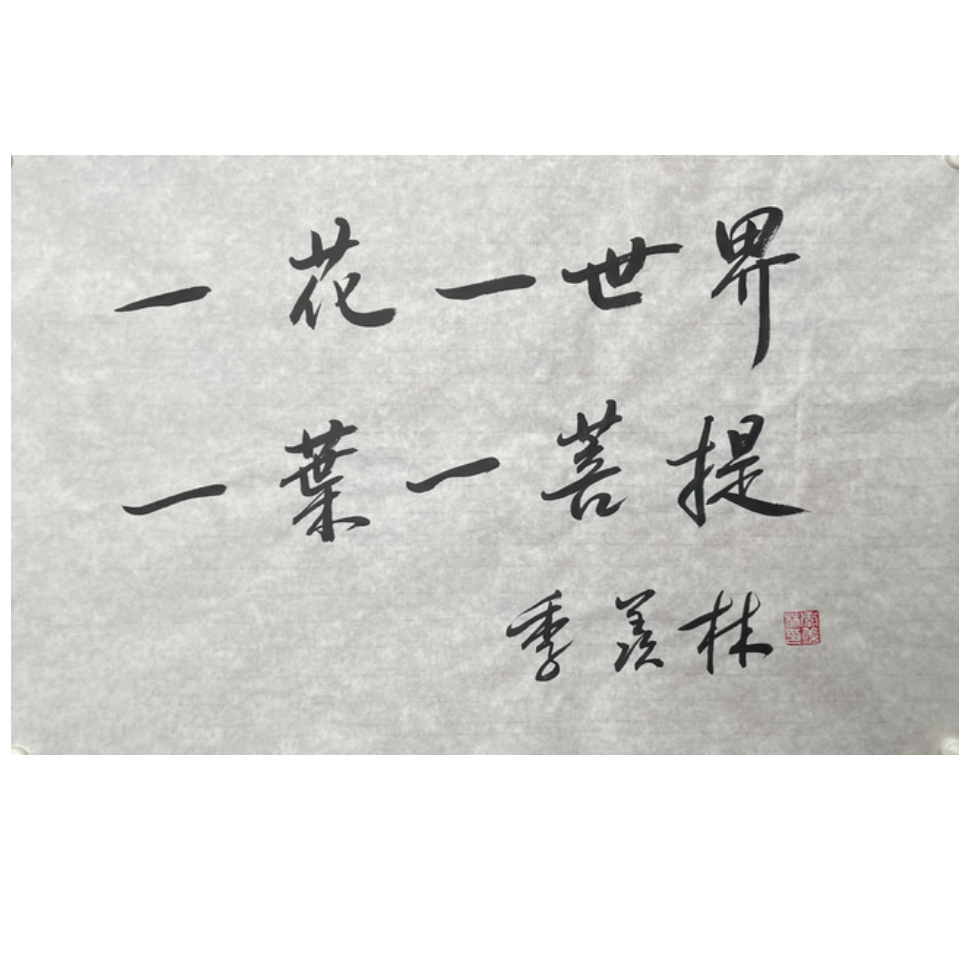 一花一世界
一葉一菩提
季羨林